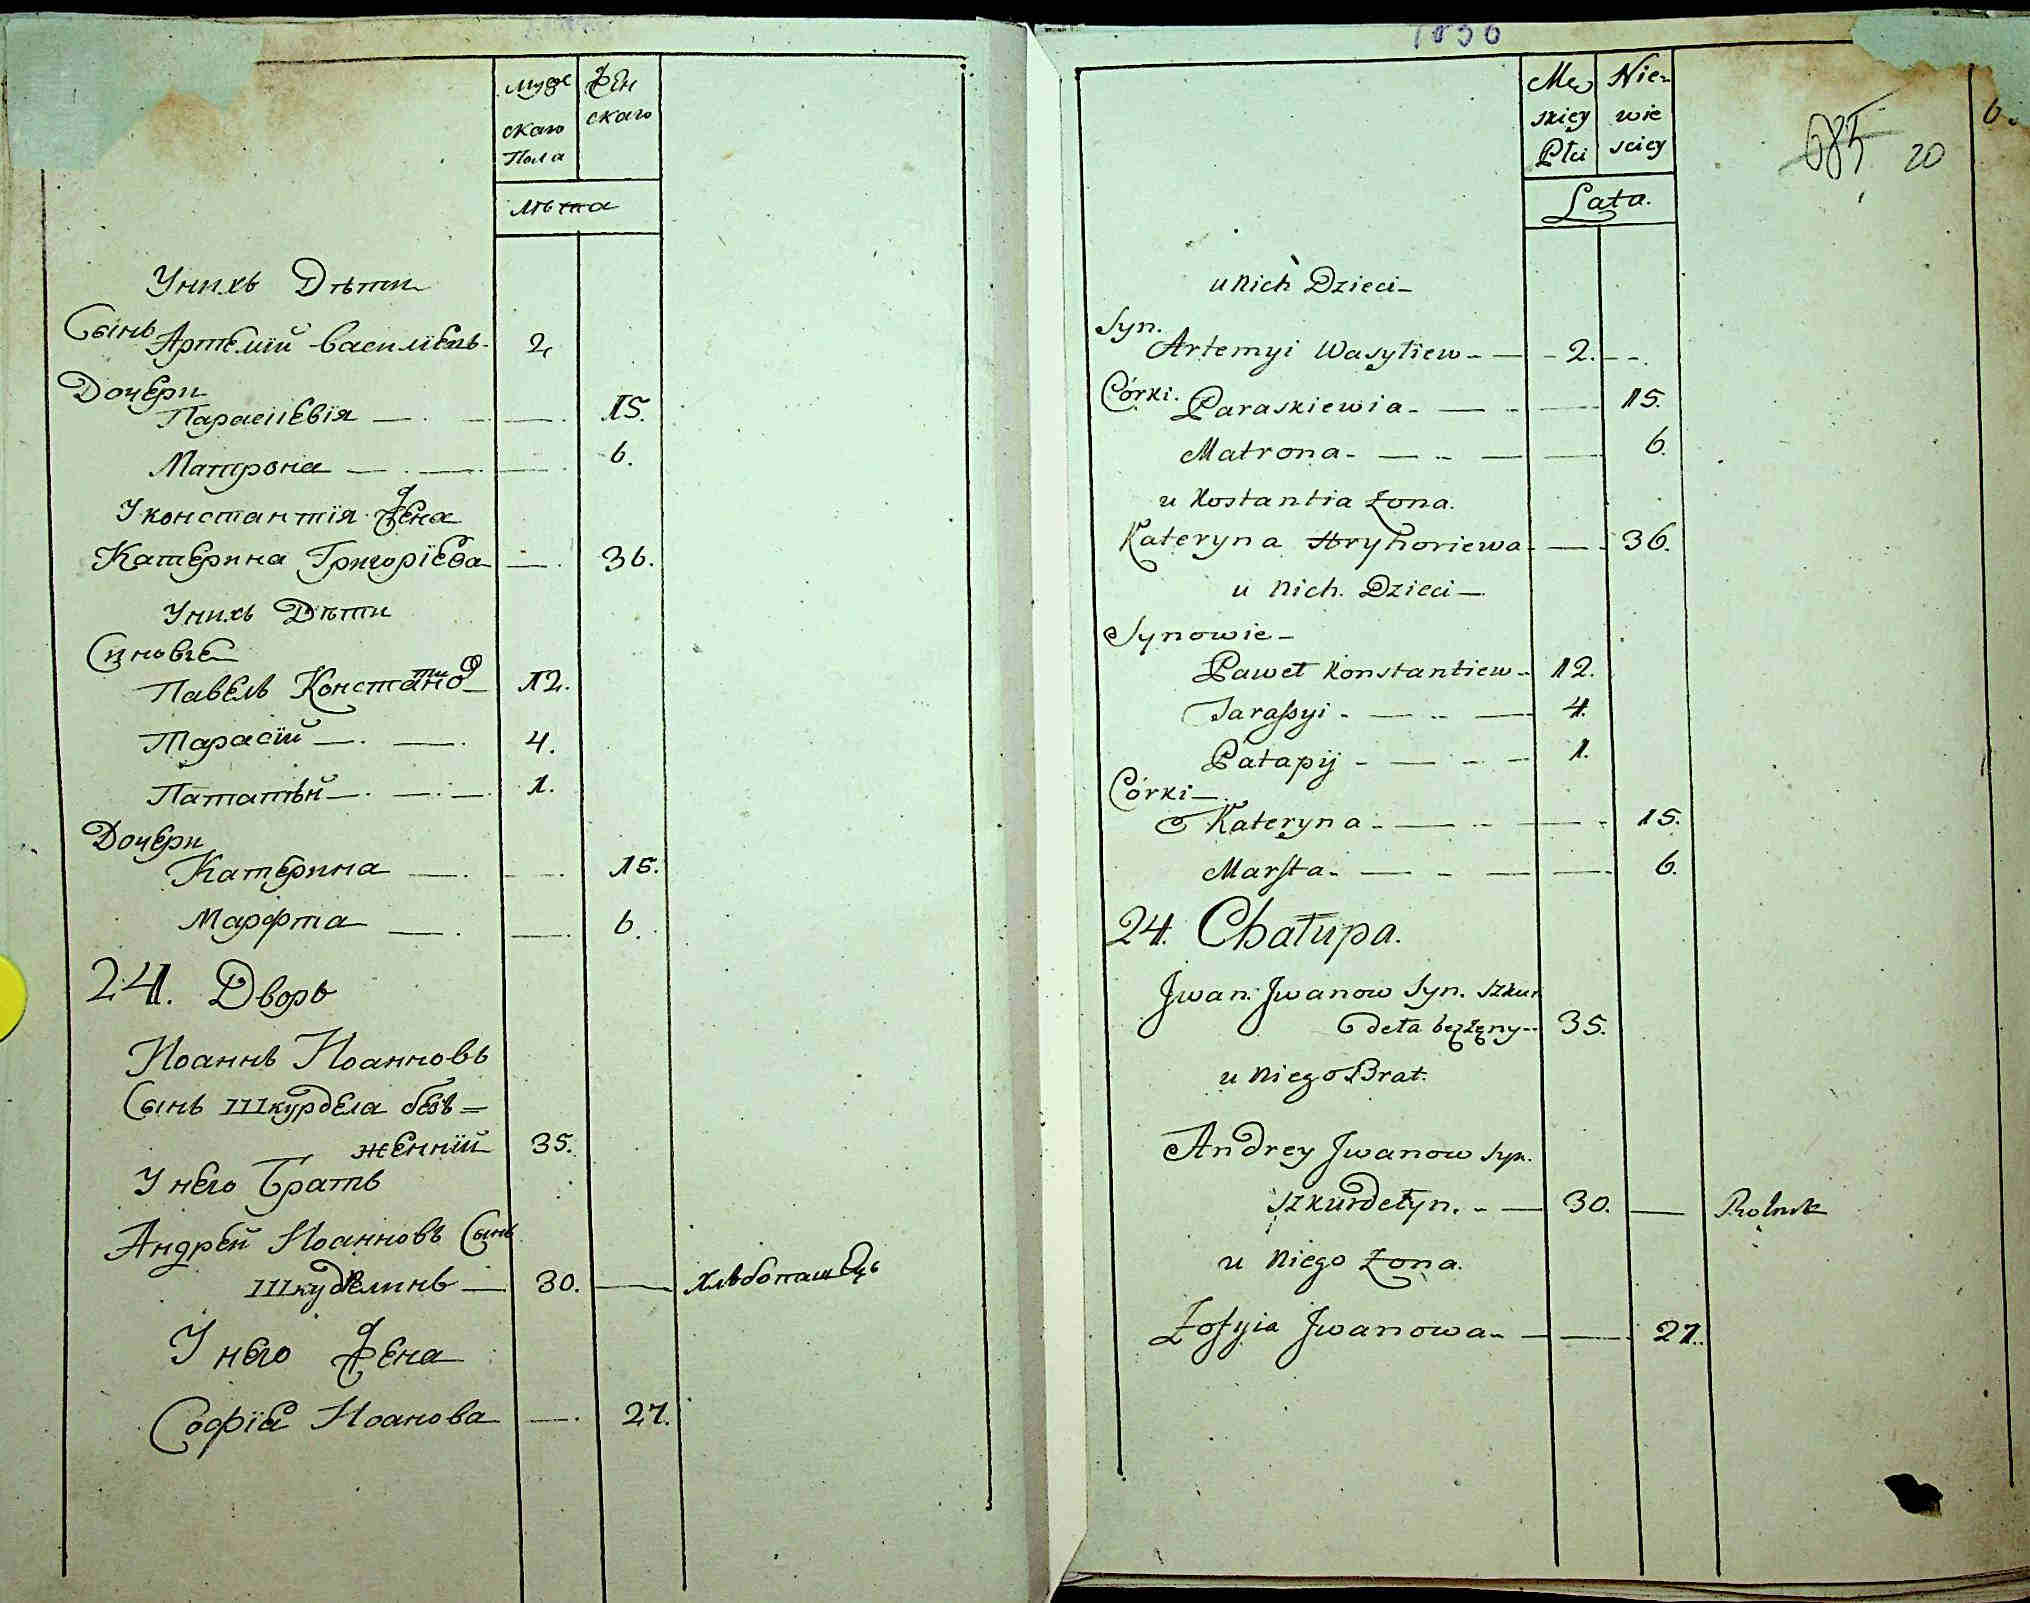 мужс
скаго
Пола
Жен
скаго
лѣта
У нихъ Дѣти
Сынъ
Артемій Василіевъ
2
Дочери
Параскевія 15.
Матрона 6.
У константія Жена
Катерина Григоріева 36.
У нихъ Дѣти
Синовѣ
Павелъ Константиновъ 12.
Тарасій 4.
Дочери
1.
Катерина 15.
Марфта 6.
24. Дворъ
Иоаннъ Иоанновъ
Сынъ Шкурдела безъ=
женній 35.
У него Братъ
Андрей Иоанновъ Сынъ
30. Хлѣбопашецъ
У него Жена
Софіа Иоанова 27.
1836
Męz
skiey
Płci
Nie-
wie
sciey
Lata.
685 20
u nich Dzieci
Syn.
Artemyi Wasyliew 2.
Córki. Paraskiewia 15.
Matrona 6.
u Kostantia Żona.
Kateryna Hryhoriewa 36.
u nich. Dzieci
Synowie
Paweł Konstantiew 12.
Tarassyi 4.
Patapij 1.
Córki
Kateryna 15.
Marfta 6.
24. Chałupa.
Jwan Jwanow Syn. Szkur
deła bezżeny 35.
u niego Brat.
Andrey Jwanow Syn.
Szkurdełyn. 30. Rolnik
u niego Żona.
Zofyia Jwanowa 27.